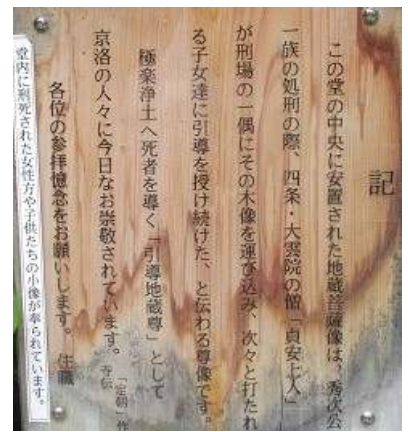 記
この堂の中央に安置された地蔵菩薩像は、秀次公
一族の処刑の際、四条・大雲院の僧「貞安上人」
が刑場の一偶にその木像を運び込み、次々と打たれ
る子女達に引導を授け続けた、と伝わる尊像です。
極楽浄土へ死者を導く「引導地蔵尊」として
京洛の人々に今日なお崇敬されています。
「定朝」作
寺伝
各位の参拝憶念をお願いします。 住職
堂内に刑死された女性方や子供たちの小像が奉られています。